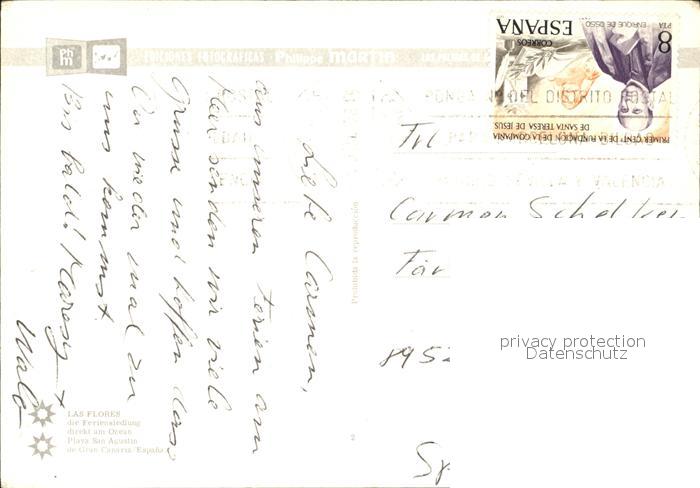 EDICIONES FOTOGRAFICAS - Philippe MARTIN
Liebe Carmen,
aus unseren Ferien am
Meer senden wir viele
Grüsse und hoffen dass
Du wieder mal zu
uns kommst.
Bis bald! Maresy +
Walo
LAS FLORES
die Feriensiedlung
direkt am Ocean
Playa San Agustin
de Gran Canaria (España)
Prohibida la reproducción
2
ESPAÑA
CORREOS
8
PTA
ENRIQUE DE OSSO
PRIMER CENT° DE LA FUNDACION DE LA COMPAÑIA
DE SANTA TERESA DE JESUS
PONGA N° DEL DISTRITO POSTAL
SEVILLA Y VALENCIA
Frl
Carmen
895
privacy protection
Datenschutz